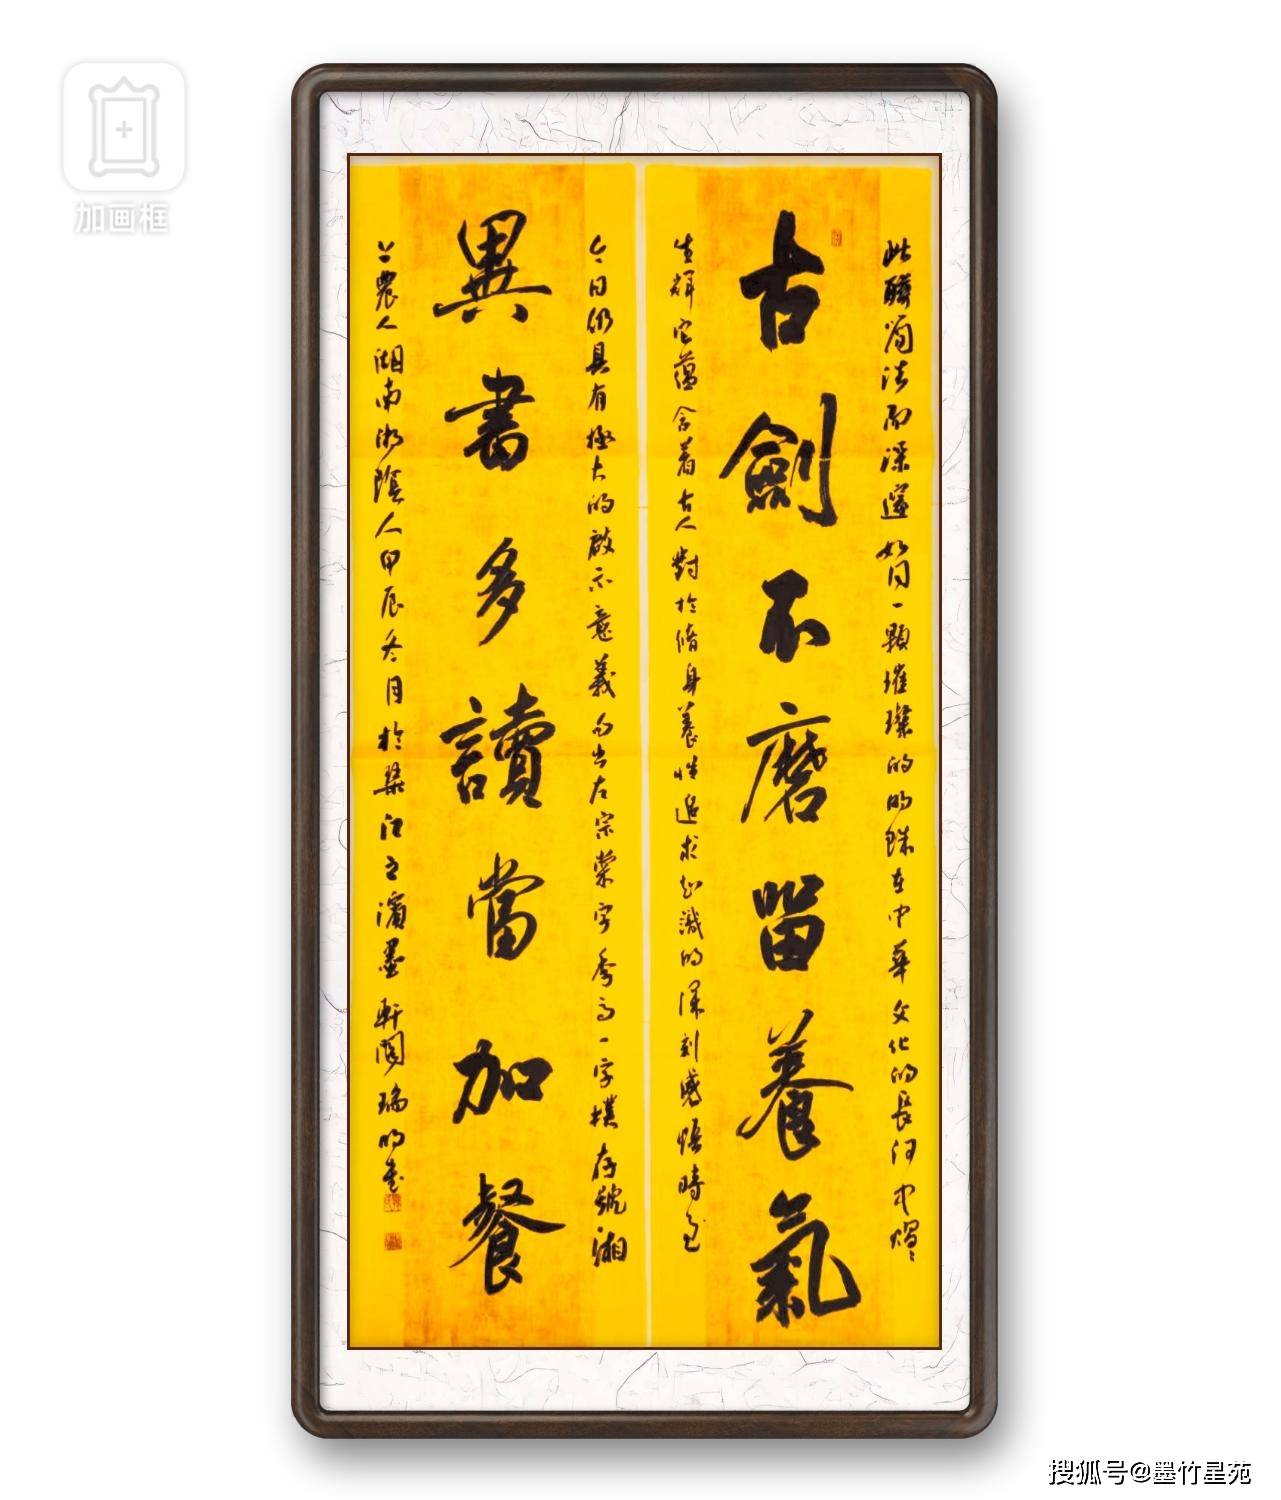 此聯簡潔而深邃如同一顆璀璨的明珠在中華文化的長河中熠々
古劍不磨留養氣
生輝它蘊含着古人對於脩身養性追求知識的深刻感悟時至
今日仍具有極大的啟示意義句出左宗棠字季高一字樸存號湘
異書多讀當加餐
上農人湖南湘陰人甲辰冬月於江之濱墨軒閣瑞明書
加画框
搜狐号@墨竹星苑